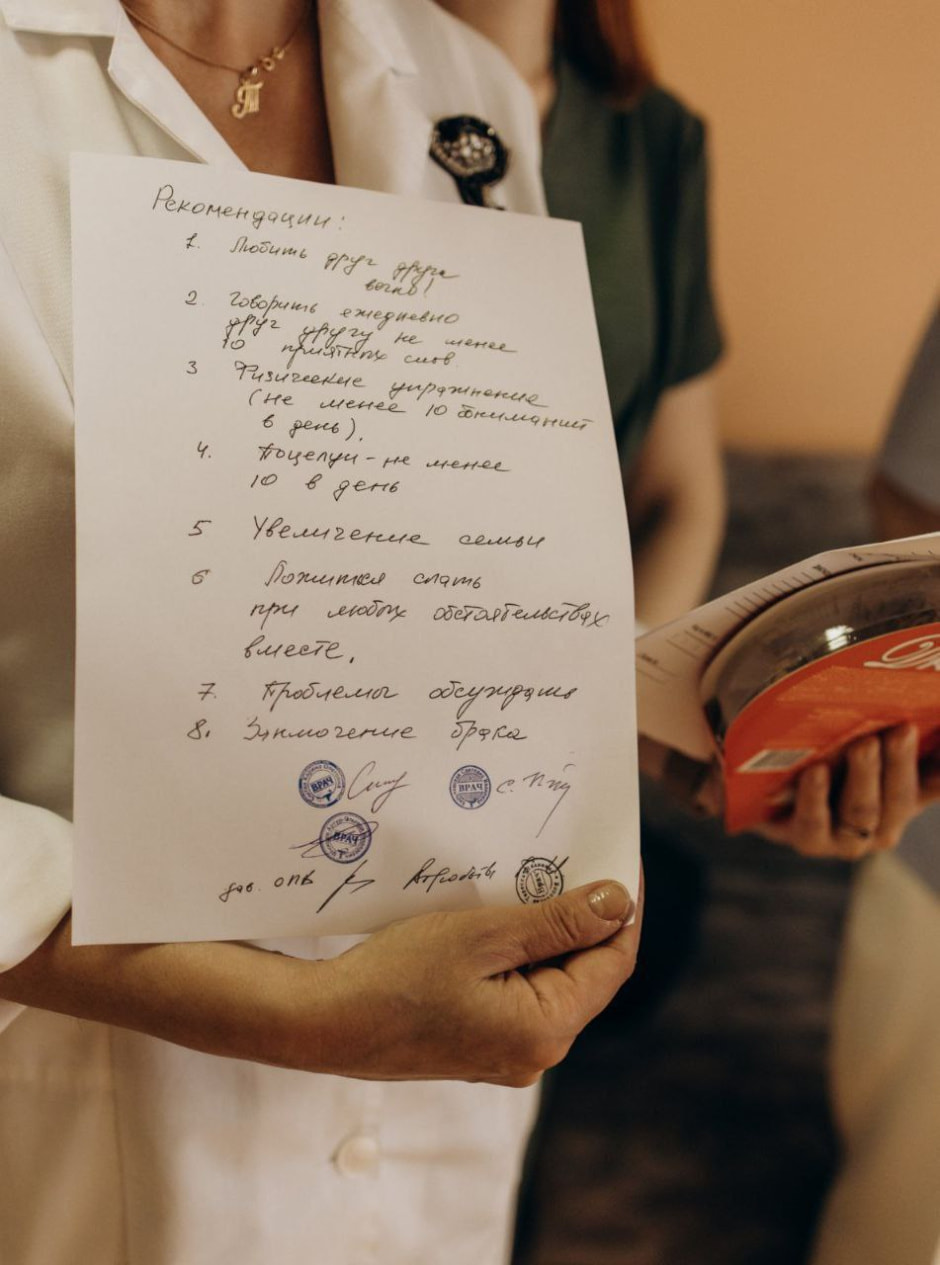 Рекомендации:
1. Любить друг друга
вечно!
2. Говорить ежедневно
друг другу не менее
10 приятных слов.
3 Физические упражнение
(не менее 10 обниманий
в день).
4. Поцелуи - не менее
10 в день
5 Увеличение семьи
6 Ложится спать
при любых обстоятельствах
вместе.
7. Проблемы обсуждать
8. Заключение брака
ВРАЧ
ВРАЧ
ВРАЧ
зав. ОПВ